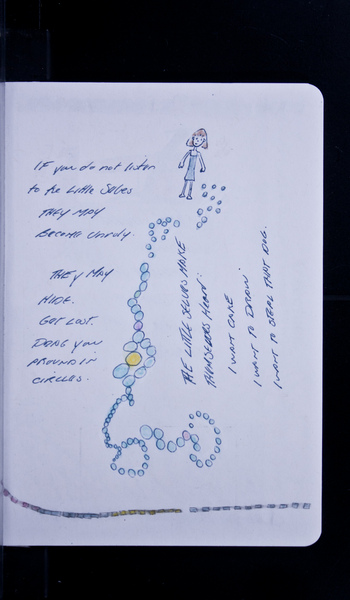 IF you do not listen
to the Little Selves
THEY MAY
Become Unruly.
THEY MAY
HIDE.
GET LOST.
DRAG YOU
AROUND IN
CIRCLES.
THE LITTLE SELVES MAKE
THEMSELVES HEARD:
I WANT CAKE
I WANT TO DRAW.
I WANT TO STEAL THAT DOG.